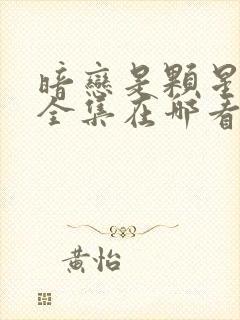 暗戀是顆星
全集在哪看
黃怡